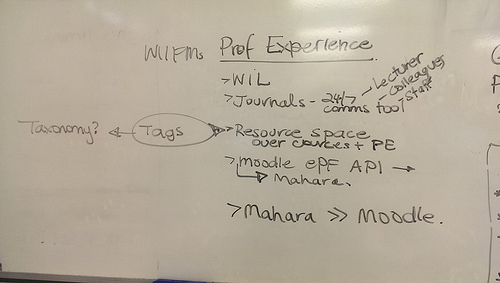 WIIFMs Prof Experience
> WIL
> Journals - 24/7 comms tool
Lecturer
Colleagues
Staff
Taxonomy? ← Tags → > Resource space
over courses + PE
> Moodle ePF API →
Mahara.
> Mahara >> Moodle.